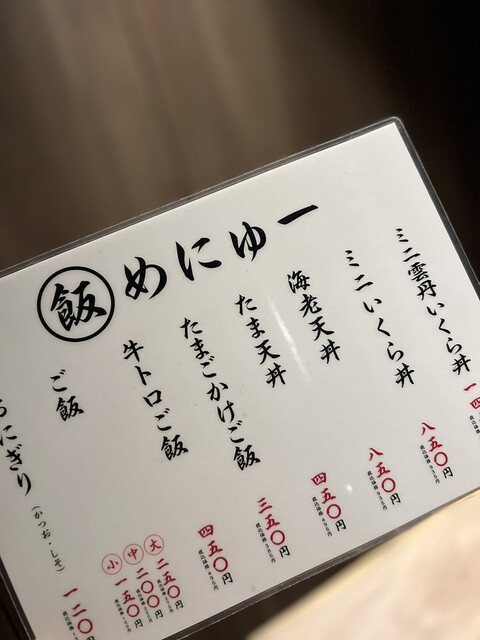 飯めにゅー
ミニ雲丹いくら丼 一四
ミニいくら丼 八五〇円
海老天丼 八五〇円
たま天丼 四五〇円
たまごかけご飯 三五〇円
牛トロご飯 四五〇円
ご飯
大 二五〇円
中 二〇〇円
小 一五〇円
にぎり(かつお・しそ) 一二〇